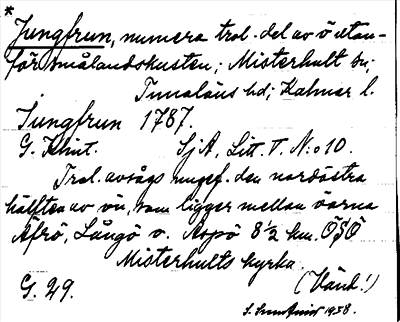 *
Jungfrun, numera trol. del av ö utan-
för Smålandskusten; Misterhult sn;
Tunaläns hd; Kalmar l.
Jungfrun 1787.
G. Klint. SjA, Litt. T. N:o 10.
Trol. avsågs ungef. den nordöstra
hälften av ön, som ligger mellan öarna
Äfrö, Långö o. Aspö 8½ km. ÖSÖ
Misterhults kyrka.
G. 29. (Vänd!)
1938.